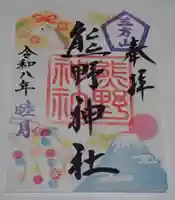 奉拝
三方山
熊野神社
熊野神社
令和八年
睦月